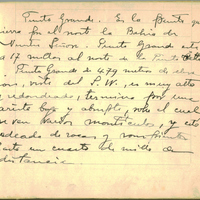 Punta Grande. Es la Punta que
cierra por el norte la Bahía de
Nuestro Señor. Punta Grande está
a 17 millas al norte de la Punta
Punta Grande de 479 metros de eleva
ción, vista del S.W., es muy alta
y redondeada, termina por una
bajo y abrupto, sobre el cual
se ven varios montículos, y está
rodeado de rocas y rompientes
hasta un cuarto de milla de
distancia.